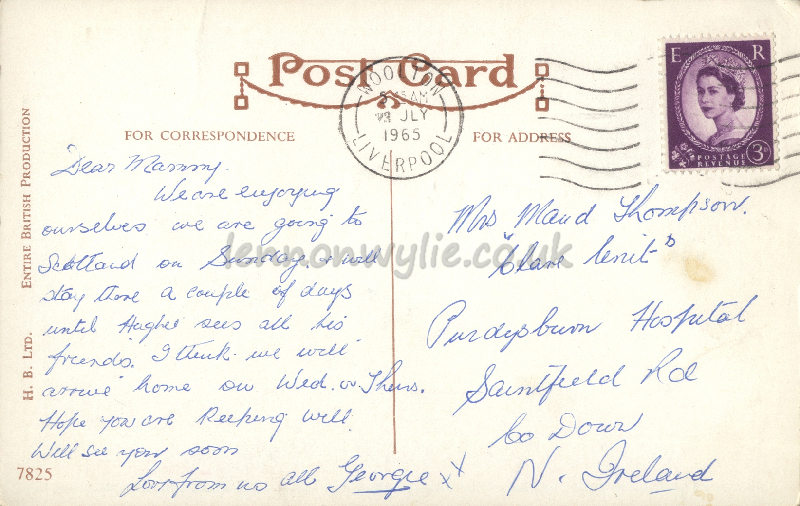 Post Card
WOOLTON
AM
JLY
1965
LIVERPOOL
E R
POSTAGE
REVENUE
3D
FOR CORRESPONDENCE
FOR ADDRESS
ENTIRE BRITISH PRODUCTION
H. B. LTD.
7825
Dear Mammy.
We are enjoying
ourselves we are going to
Scotland on Sunday & will
stay there a couple of days
until Hughie sees all his
friends. I think we will
arrive home on Wed. or Thurs.
Hope you are keeping well.
Will see you soon
Love from us all Georgie xx
Mrs Maud Thompson.
"Clare Unit"
Purdysburn Hospital
Saintfield Rd
Co Down
N. Ireland
lennonwylie.co.uk